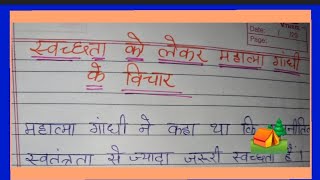 स्वच्छता को लेकर महात्मा गांधी
के विचार
महात्मा गांधी ने कहा था कि
स्वतंत्रता से ज्यादा जरूरी स्वच्छता है।